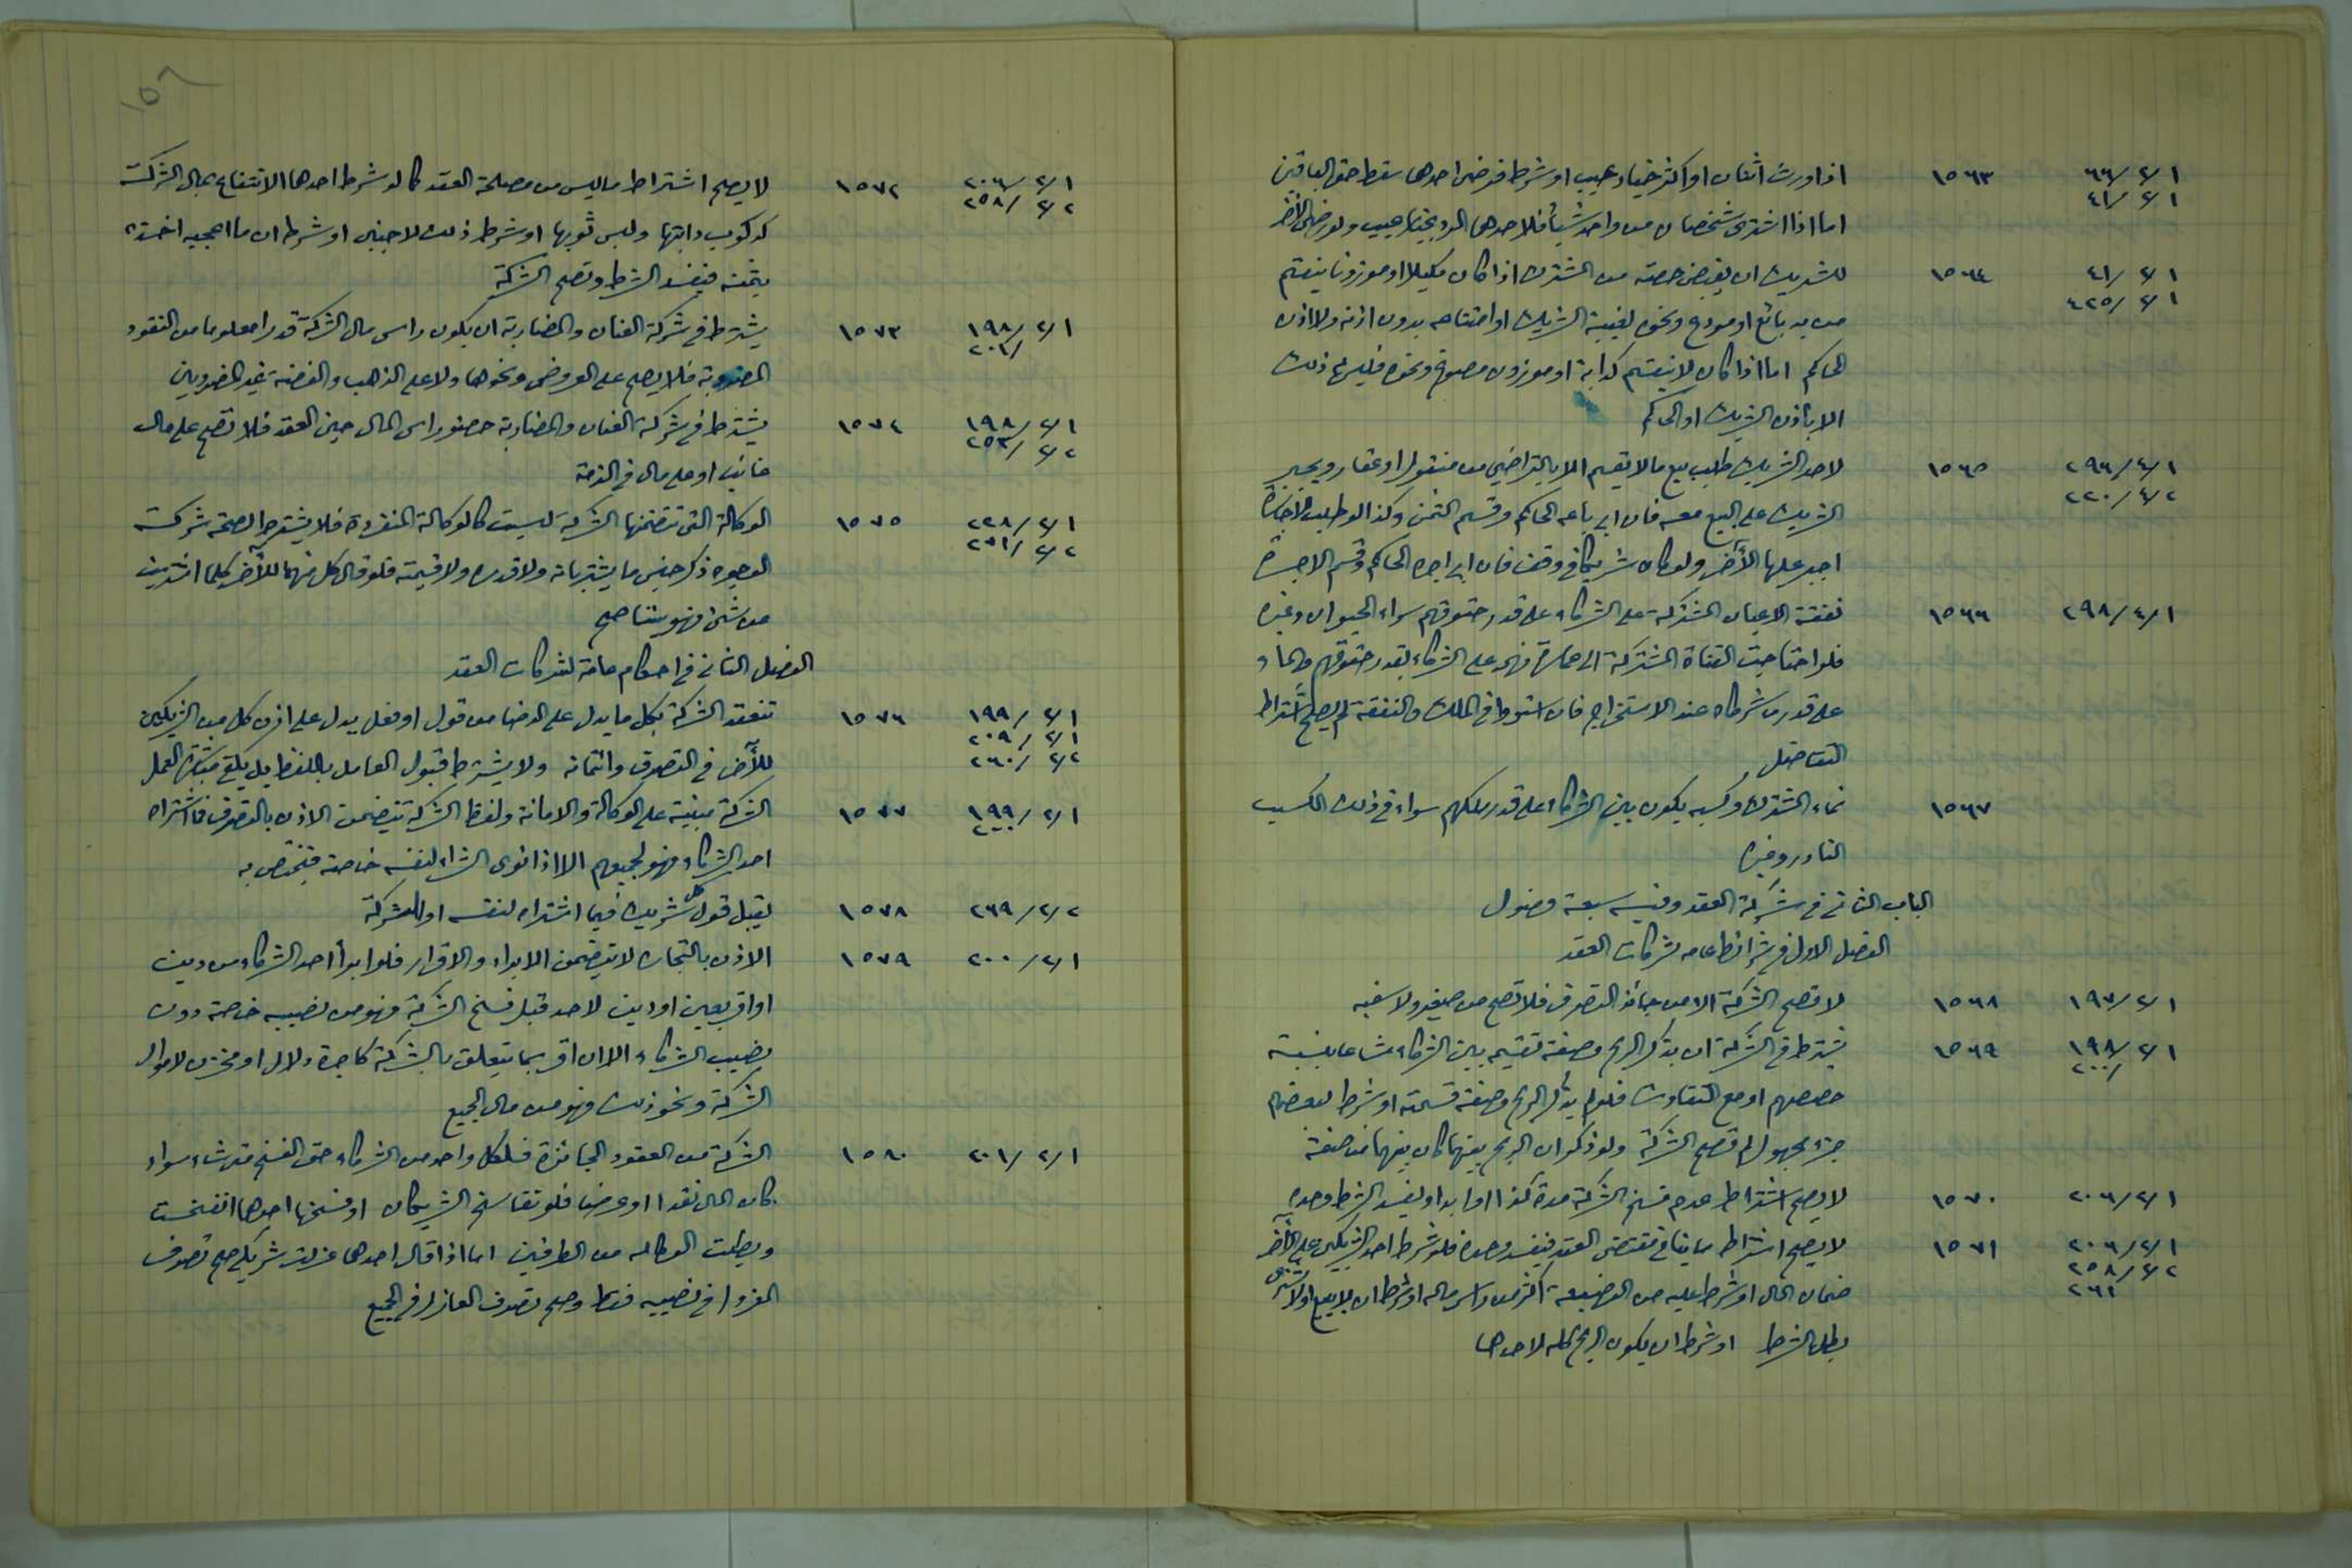 ١/٢/٦٦ ١٥٦٣ اذا ورث اثنان او اكثر خيار عيب او شرط فرضي احدهما سقط حق الباقين
١/٢/٤١ اما اذا اشترى شخصان من واحد شيئا فلاحدهما الرد بخيار عيب ولو رضي الآخر
١/٢/٤١ ١٥٦٤ للشريك ان يقبض حصته من المشترك اذا كان مكيلا او موزونا ينقسم
١/٢/٤٢٥ من يد بائع او مودع ونحوه لغيبة الشريك او امتناعه بدون اذنه ولا اذن
الحاكم اما اذا كان لا ينقسم كدابة او موزون مصوغ ونحوه فليس له ذلك
الا باذن الشريك او الحاكم
١/٤/٢٩٦ ١٥٦٥ لاحد الشريك طلب بيع ما لا يقسم الا بالتراضي من منقول او عقار ويجبر
٢/٤/٢٢٠ الشريك على البيع معه فان ابى باعه الحاكم وقسم الثمن وكذا لو طلب الاجارة
اجبر عليها الآخر ولو كان شريكا في وقف فان ابى اجره الحاكم وقسم الاجرة
١/٤/٢٩٨ ١٥٦٦ نفقة الاعيان المشتركة على الشركاء على قدر حقوقهم سواء الحيوان وغيره
فلو احتاجت القناة المشتركة الى عمارة فهي على الشركاء بقدر حقوقهم والماء
على قدر ما شرطاه عند الاستخراج فان استووا في الملك والنفقة لم يصح اشتراط
التفاضل
١٥٦٧ نماء المشترك وكسبه يكون بين الشركاء على قدر ملكهم سواء في ذلك الكسب
النادر وغيره
الباب الثاني في شركة العقد وفيه سبعة فصول
الفصل الاول في شرائط عامه لشركات العقد
١/٢/١٩٧ ١٥٦٨ لا تصح الشركة الا من جائز التصرف فلا تصح من صغير ولا سفيه
١/٢/١٩٨ ١٥٦٩ يشترط في الشركة ان يذكر الربح وصفة تقسيمه بين الشركاء مشاعا بنسبة
/٢٠٠ حصصهم او مع التفاوت فلو لم يذكر الربح وصفة قسمته او شرط لبعضهم
جزء مجهول لم تصح الشركة ولو ذكر ان الربح بينهما كان بينهما مناصفة
١/٢/٢٠٦ ١٥٧٠ لا يصح اشتراط عدم فسخ الشركة مدة كذا او ابدا ويفسد الشرط وحده
١/٢/٢٠٦ ١٥٧١ لا يصح اشتراط ما ينافي مقتضى العقد فيفسد وحده فلو شرط احد الشريكين على الآخر
٢/٢/٢٥٨ ضمان المال او شرط عليه من الوضيعة اكثر من راس ماله او شرط ان لا يبيع او لا يشتري
٢٦١
بطل الشرط او شرط ان يكون الربح كله لاحدهما
١٥٢
١/٢/٢٠٦ ١٥٧٢ لا يصح اشتراط ما ليس من مصلحة العقد كما لو شرط احدهما الانتفاع بمال الشركة
٢/٢/٢٥٨ كركوب دابتها ولبس ثوبها او شرط ذلك لاجنبي او شرط ان ما اعجبه اخذه
بثمنه فيفسد الشرط وتصح الشركة
١/٢/١٩٨ ١٥٧٣ يشترط في شركة العنان والمضاربة ان يكون راس مال الشركة قدرا معلوما من النقود
/٢٠١ المضروبة فلا يصح على العروض ونحوها ولا على الذهب والفضة غير المضروبين
١/٢/١٩٨ ١٥٧٤ يشترط في شركة العنان والمضاربة حضور راس المال حين العقد فلا تصح على مال
٢/٢/٢٥٣ غائب او على مال في الذمة
١/٢/٢٢٨ ١٥٧٥ الوكالة التي تتضمنها الشركة ليست كالوكالة المنفردة فلا يشترط لصحة شركة
٢/٢/٢٧١ الوجوه ذكر جنس ما يشتريانه ولا قدره ولا قيمته فلو قال كل منهما للآخر كلما اشتريت
من شيء فهو بيننا صح
الفصل الثاني في احكام عامة لشركات العقد
١/٢/١٩٩ ١٥٧٦ تنعقد الشركة بكل ما يدل على الرضا من قول او فعل يدل على اذن كل من الشريكين
١/٢/٢٠٩
٢/٢/٢٦٠ للآخر في التصرف وائتمانه ولا يشترط قبول العامل باللفظ بل يكفي مباشرة العمل
١/٢/١٩٩ ١٥٧٧ الشركة مبنية على الوكالة والامانة ولفظ الشركة يتضمن الاذن بالتصرف فما اشتراه
٢٠٠ احد الشركاء فهو لجميعهم الا اذا نوى الشراء لنفسه خاصة فيختص به
٢/٢/٢٦٩ ١٥٧٨ يقبل قول كل شريك فيما اشتراه لنفسه او للشركة
١/٢/٢٠٠ ١٥٧٩ الاذن بالتجارة لا يتضمن الابراء والاقرار فلو ابرأ احد الشركاء من دين
او اقر بعين او دين لاحد قبل فسخ الشركة فهو من نصيبه خاصة دون
نصيب الشركاء الا ان اقر بما يتعلق بالشركة كاجرة دلال او مخزن لاموال
الشركة ونحو ذلك فهو من مال الجميع
١/٢/٢٠١ ١٥٨٠ الشركة من العقود الجائزة فلكل واحد من الشركاء حق الفسخ متى شاء سواء
كان المال نقدا او عرضا فلو تفاسخ الشريكان او فسخها احدهما انفسخت
وبطلت الوكاله من الطرفين اما اذا قال احدهما عزلت شريكي صح تصرف
المعزول في نصيبه فقط وصح تصرف العازل في الجميع